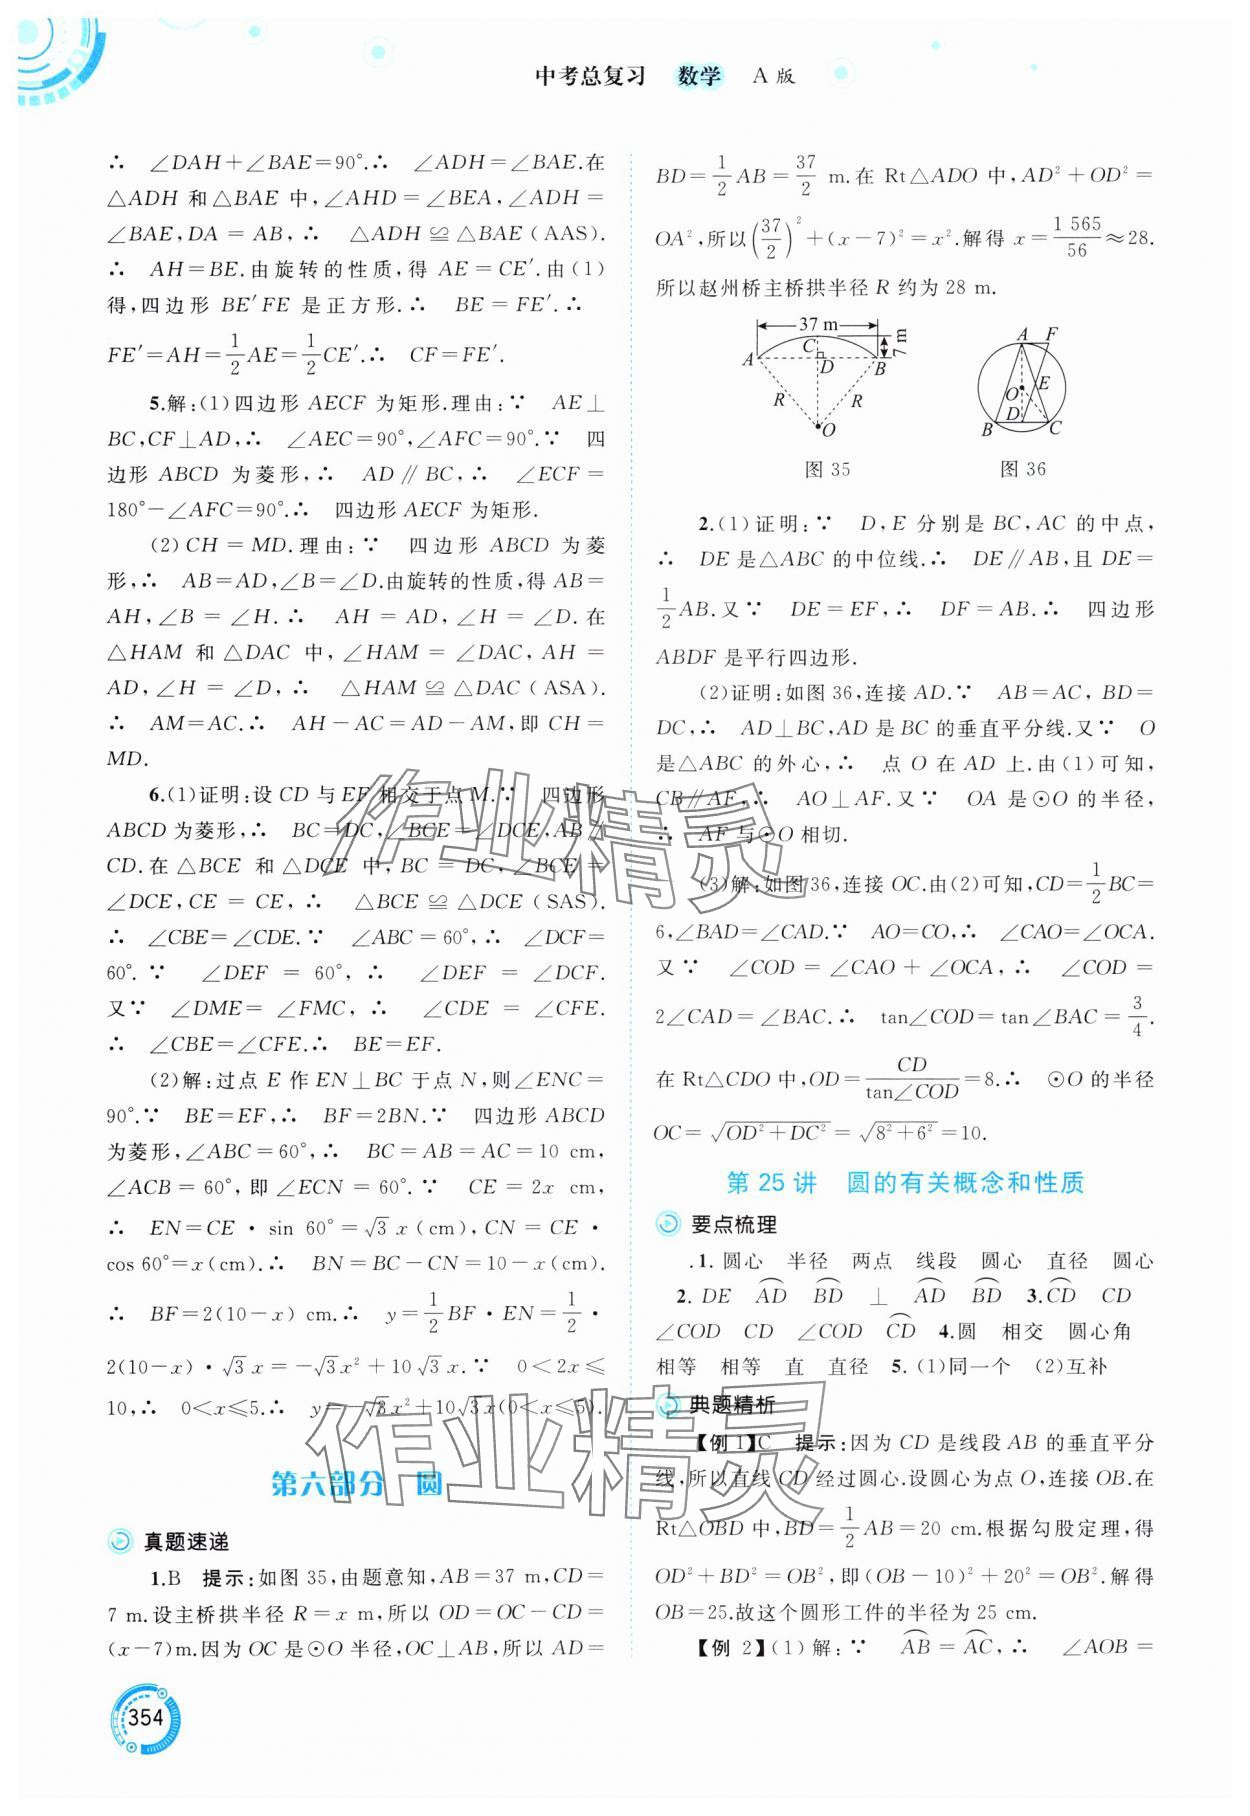 中考总复习 数学 A 版
∴ ∠DAH+∠BAE=90°.∴ ∠ADH=∠BAE.在
△ADH 和△BAE 中,∠AHD=∠BEA,∠ADH=
∠BAE,DA=AB,∴ △ADH≌△BAE(AAS).
∴ AH=BE.由旋转的性质,得 AE=CE′.由(1)
得,四边形 BE′FE 是正方形.∴ BE=FE′.∴
FE′=AH=1/2AE=1/2CE′.∴ CF=FE′.
5.解:(1)四边形 AECF 为矩形.理由:∵ AE⊥
BC,CF⊥AD,∴ ∠AEC=90°,∠AFC=90°.∵ 四
边形 ABCD 为菱形,∴ AD∥BC,∴ ∠ECF=
180°-∠AFC=90°.∴ 四边形 AECF 为矩形.
(2)CH=MD.理由:∵ 四边形 ABCD 为菱
形,∴ AB=AD,∠B=∠D.由旋转的性质,得 AB=
AH,∠B=∠H.∴ AH=AD,∠H=∠D.在
△HAM 和△DAC 中,∠HAM=∠DAC,AH=
AD,∠H=∠D,∴ △HAM≌△DAC(ASA).
∴ AM=AC.∴ AH-AC=AD-AM,即 CH=
MD.
6.(1)证明:设 CD 与 EF 相交于点 M.∵ 四边形
ABCD 为菱形,∴ BC=DC,∠BCE=∠DCE,AB∥
CD.在△BCE 和△DCE 中,BC=DC,∠BCE=
∠DCE,CE=CE,∴ △BCE≌△DCE(SAS).
∴ ∠CBE=∠CDE.∵ ∠ABC=60°,∴ ∠DCF=
60°.∵ ∠DEF=60°,∴ ∠DEF=∠DCF.
又∵ ∠DME=∠FMC,∴ ∠CDE=∠CFE.
∴ ∠CBE=∠CFE.∴ BE=EF.
(2)解:过点 E 作 EN⊥BC 于点 N,则∠ENC=
90°.∵ BE=EF,∴ BF=2BN.∵ 四边形 ABCD
为菱形,∠ABC=60°,∴ BC=AB=AC=10 cm,
∠ACB=60°,即∠ECN=60°.∵ CE=2x cm,
∴ EN=CE·sin 60°=√3x(cm),CN=CE·
cos 60°=x(cm).∴ BN=BC-CN=10-x(cm).
∴ BF=2(10-x) cm.∴ y=1/2BF·EN=1/2·
2(10-x)·√3x=-√3x²+10√3x.∵ 0<2x≤
10,∴ 0<x≤5.∴ y=-√3x²+10√3x(0<x≤5).
第六部分 圆
真题速递
1.B 提示:如图 35,由题意知,AB=37 m,CD=
7 m.设主桥拱半径 R=x m,所以 OD=OC-CD=
(x-7)m.因为 OC 是⊙O 半径,OC⊥AB,所以 AD=
BD=1/2AB=37/2 m.在 Rt△ADO 中,AD²+OD²=
OA²,所以(37/2)²+(x-7)²=x².解得 x=1 565/56≈28.
所以赵州桥主桥拱半径 R 约为 28 m.
37 m
7 m
A C D B R R O
A F O E D B C
图 35 图 36
2.(1)证明:∵ D,E 分别是 BC,AC 的中点,
∴ DE 是△ABC 的中位线.∴ DE∥AB,且 DE=
1/2AB.又∵ DE=EF,∴ DF=AB.∴ 四边形
ABDF 是平行四边形.
(2)证明:如图 36,连接 AD.∵ AB=AC,BD=
DC,∴ AD⊥BC,AD 是 BC 的垂直平分线.又∵ O
是△ABC 的外心,∴ 点 O 在 AD 上.由(1)可知,
CB∥AF,∴ AO⊥AF.又∵ OA 是⊙O 的半径,
∴ AF 与⊙O 相切.
(3)解:如图 36,连接 OC.由(2)可知,CD=1/2BC=
6,∠BAD=∠CAD.∵ AO=CO,∴ ∠CAO=∠OCA.
又∵ ∠COD=∠CAO+∠OCA,∴ ∠COD=
2∠CAD=∠BAC.∴ tan∠COD=tan∠BAC=3/4.
在 Rt△CDO 中,OD=CD/tan∠COD=8.∴ ⊙O 的半径
OC=√(OD²+DC²)=√(8²+6²)=10.
第 25 讲 圆的有关概念和性质
要点梳理
1.圆心 半径 两点 线段 圆心 直径 圆心
2. DE A͡D B͡D ⊥ A͡D B͡D 3.C͡D CD
∠COD CD ∠COD C͡D 4.圆 相交 圆心角
相等 相等 直 直径 5.(1)同一个 (2)互补
典题精析
【例 1】C 提示:因为 CD 是线段 AB 的垂直平分
线,所以直线 CD 经过圆心.设圆心为点 O,连接 OB.在
Rt△OBD 中,BD=1/2AB=20 cm.根据勾股定理,得
OD²+BD²=OB²,即(OB-10)²+20²=OB².解得
OB=25.故这个圆形工件的半径为 25 cm.
【例 2】(1)解:∵ A͡B=A͡C,∴ ∠AOB=
354
作业精灵
作业精灵